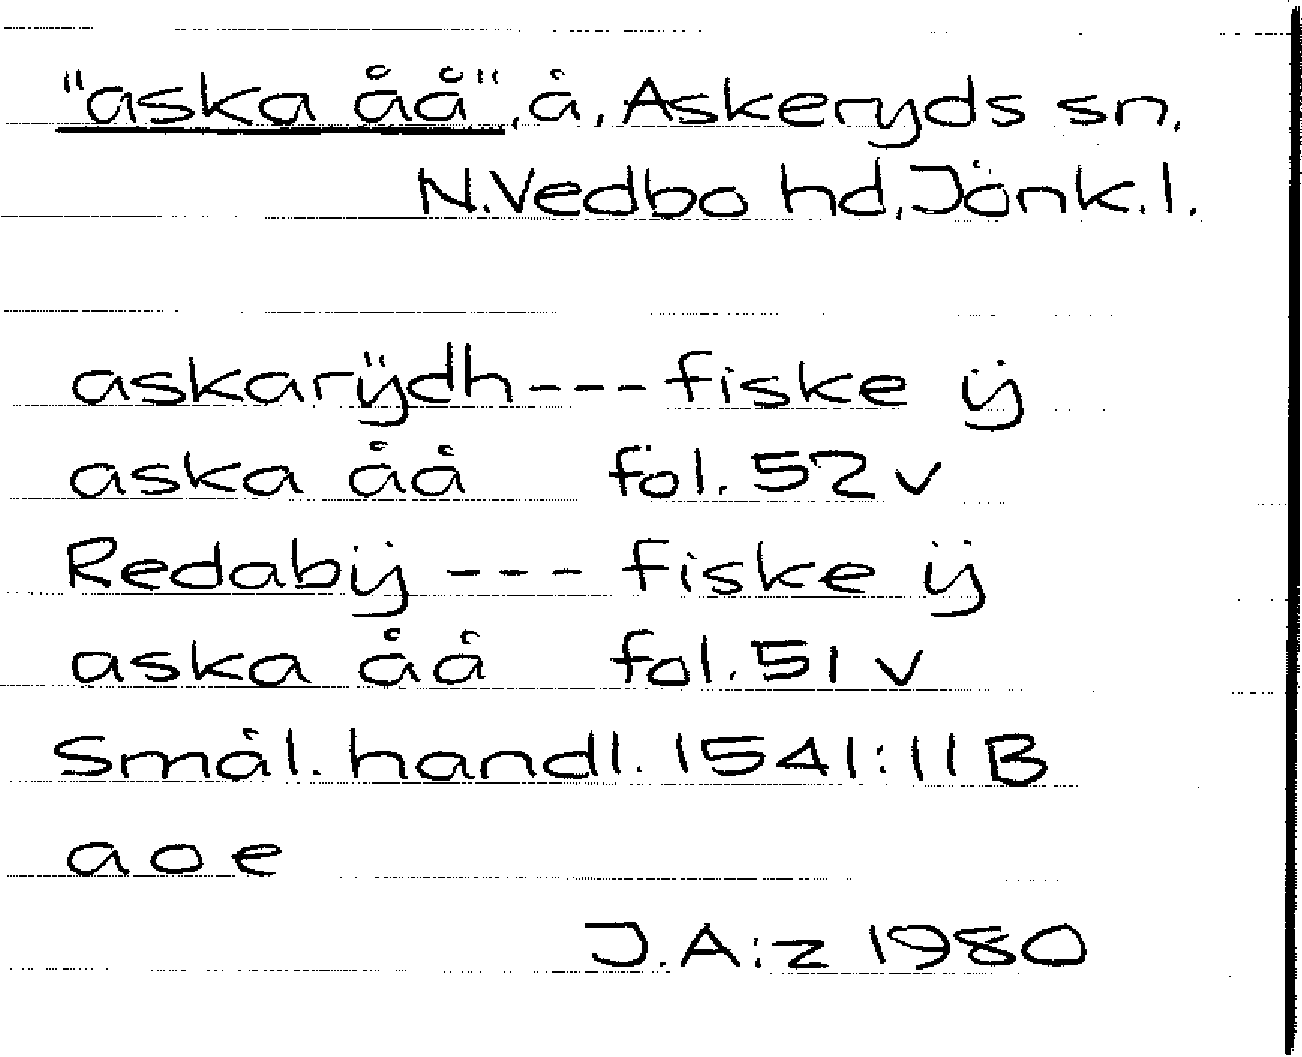 "aska åå", å, Askeryds sn,
N.Vedbo hd, Jönk.l.
askarÿdh --- fiske ij
aska åå fol. 52 v
Redabij --- fiske ij
aska åå fol. 51 v
Smål. handl. 1541:11 B
a o e
J.A:z 1980